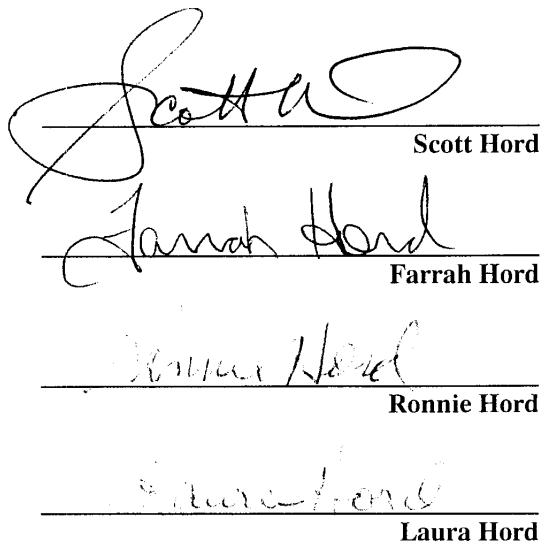 Scott
Scott Hord
Farrah Hord
Farrah Hord
Ronnie Hord
Ronnie Hord
Laura Hord
Laura Hord